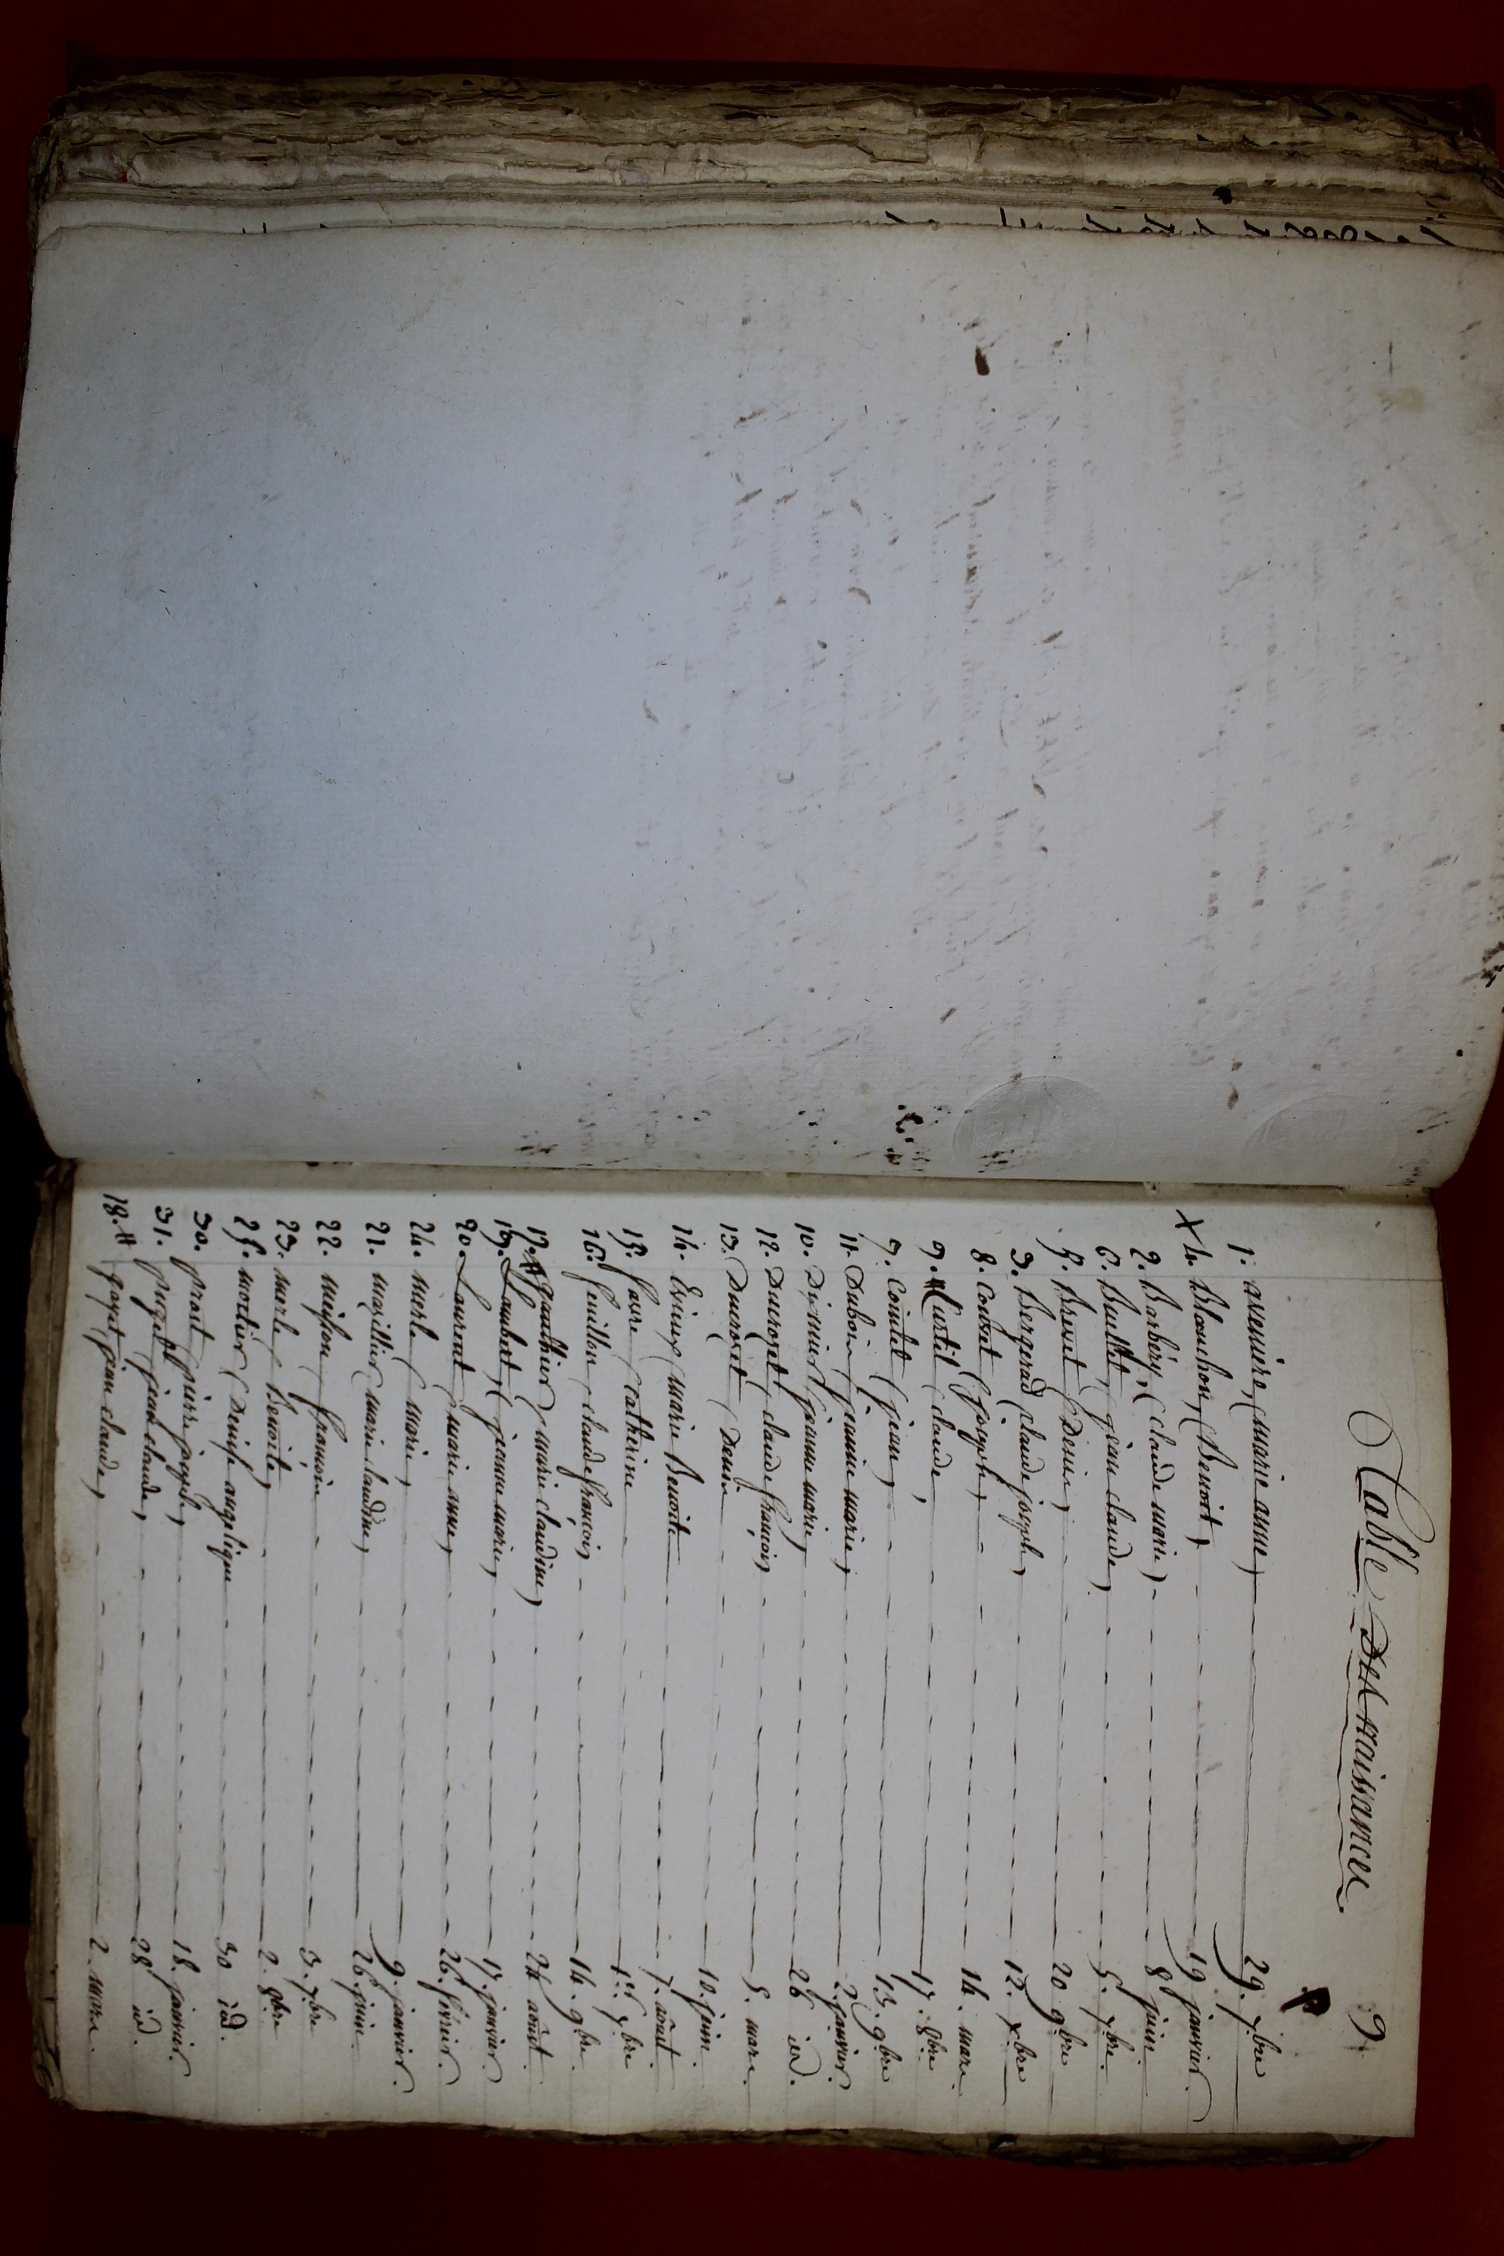 9.
Table des naissances.
1. (marie anne) 29. 7.bre
x 4. Blanchon, (Benoit) 19 janvier.
2. Barbéry, (claude marie) 8 juin.
6. Bullet, jean claude, 5. 7bre.
5. Brevet (Denis, 20 9bre
3. Bergerad claude joseph, 12. xbre
8. Couzet (joseph, 14. mars.
9. # Curtil (claude, 17. 8bre
7. Cointet (jean, 13. 9bre
11. Dubois jeanne marie, 2. janvier.
10. jeanne marie, 26 id.
12. Ducrozet (claude françois, 5. mars.
13. Ducrozet (Denis 10. juin.
14. (marie Benoite 7. août.
15. favre (catherine 1er. xbre
16. feuillon (claude françois, 14. 9bre.
17. # gauthier (marie claudine, 24 août.
19. Lambert, (jeanne marie, 17. janvier
20. Laurent (marie anne, 26. février.
24. merle (marie, 9. janvier.
21. maillier (marie claudine, 26. juin.
22. françois 3. 7bre
23. merle, Benoite, 2. 8bre
25. mortier (Denise angelique 30 id.
30. prost (pierre joseph, 18. janvier.
31. jean claude, 28 id.
18. # gayet jean claude, 2. mars.